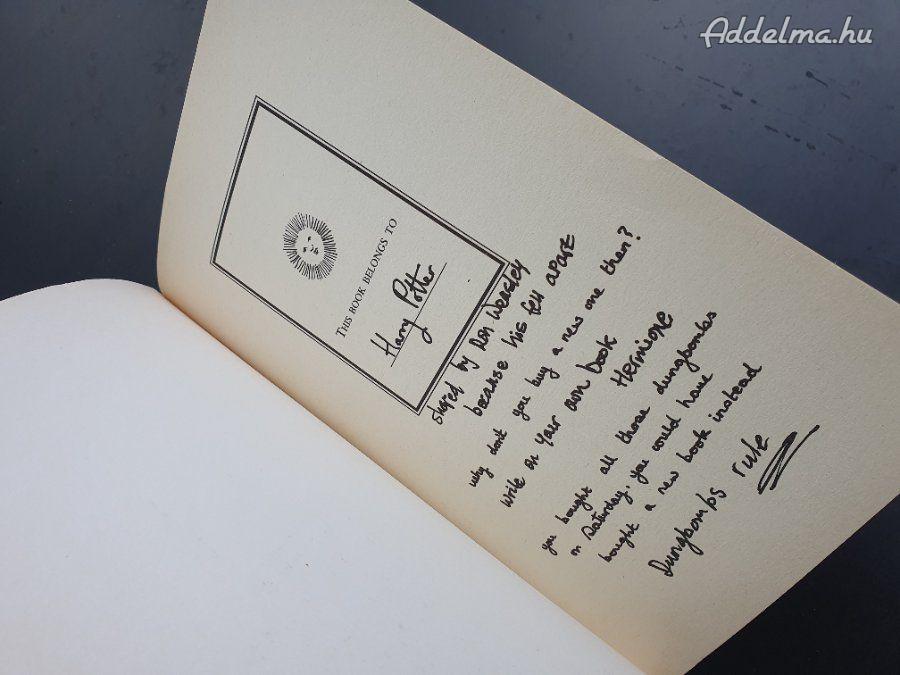 Addelma.hu
THIS BOOK BELONGS TO
Harry Potter
shared by Ron Weasley
because his fell apart
why don't you buy a new one then?
write on your own book
Hermione
you bought all those dungbombs
on Saturday. you would have
bought a new book instead
Dungbombs rule